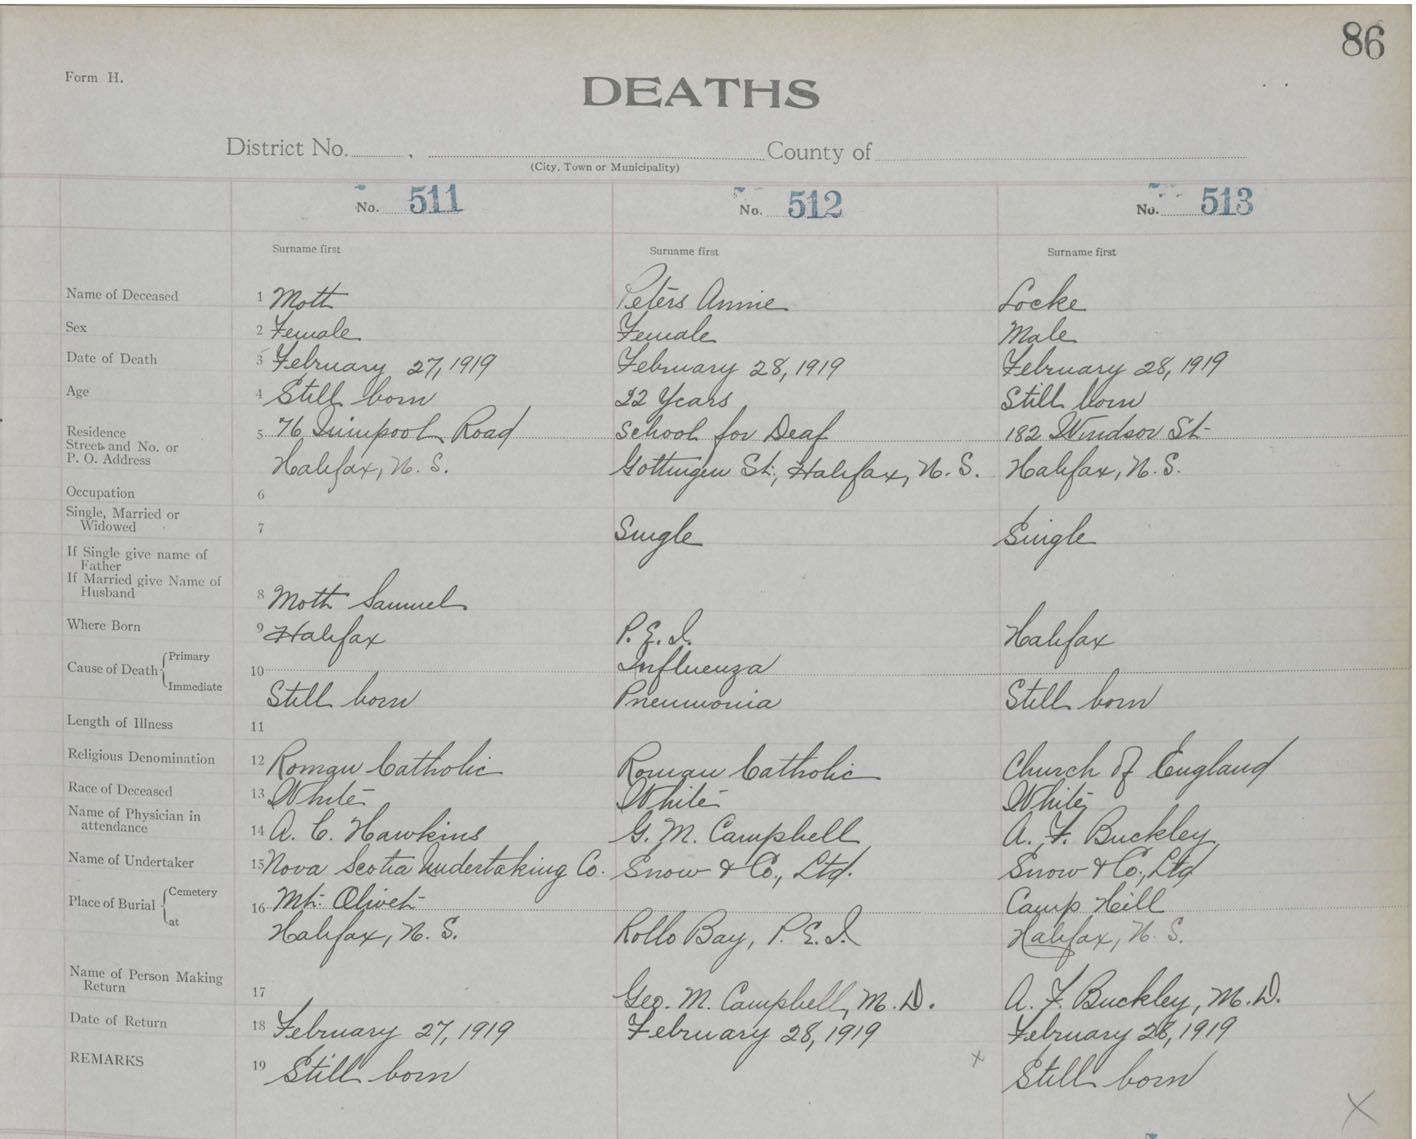 86
Form H.
DEATHS
District No. , County of
(City, Town or Municipality)
No. 511 No. 512 No. 513
Surname first Surname first Surname first
Name of Deceased 1 Moth Peters Annie Locke
Sex 2 Female Female Male
Date of Death 3 February 27, 1919 February 28, 1919 February 28, 1919
Age 4 Still born 22 Years Still born
Residence
Street and No. or 5 76 Quinpool Road School for Deaf 182 Windsor St
P. O. Address Halifax, N. S. Gottingen St, Halifax, N. S. Halifax, N. S.
Occupation 6
Single, Married or
Widowed 7 Single Single
If Single give name of
Father
If Married give Name of
Husband 8 Moth Samuel
Where Born 9 Halifax P. E. I. Halifax
Cause of Death Primary 10 Influenza
Immediate Still born Pneumonia Still born
Length of Illness 11
Religious Denomination 12 Roman Catholic Roman Catholic Church of England
Race of Deceased 13 White White White
Name of Physician in
attendance 14 A. C. Hawkins G. M. Campbell A. F. Buckley
Name of Undertaker 15 Nova Scotia Undertaking Co. Snow & Co., Ltd. Snow & Co., Ltd
Place of Burial Cemetery 16 Mt. Olivet Camp Hill
at Halifax, N. S. Rollo Bay, P. E. I. Halifax, N. S.
Name of Person Making
Return 17 Geo. M. Campbell, M. D. A. F. Buckley, M. D.
Date of Return 18 February 27, 1919 February 28, 1919 February 28, 1919
REMARKS 19 Still born x Still born
X